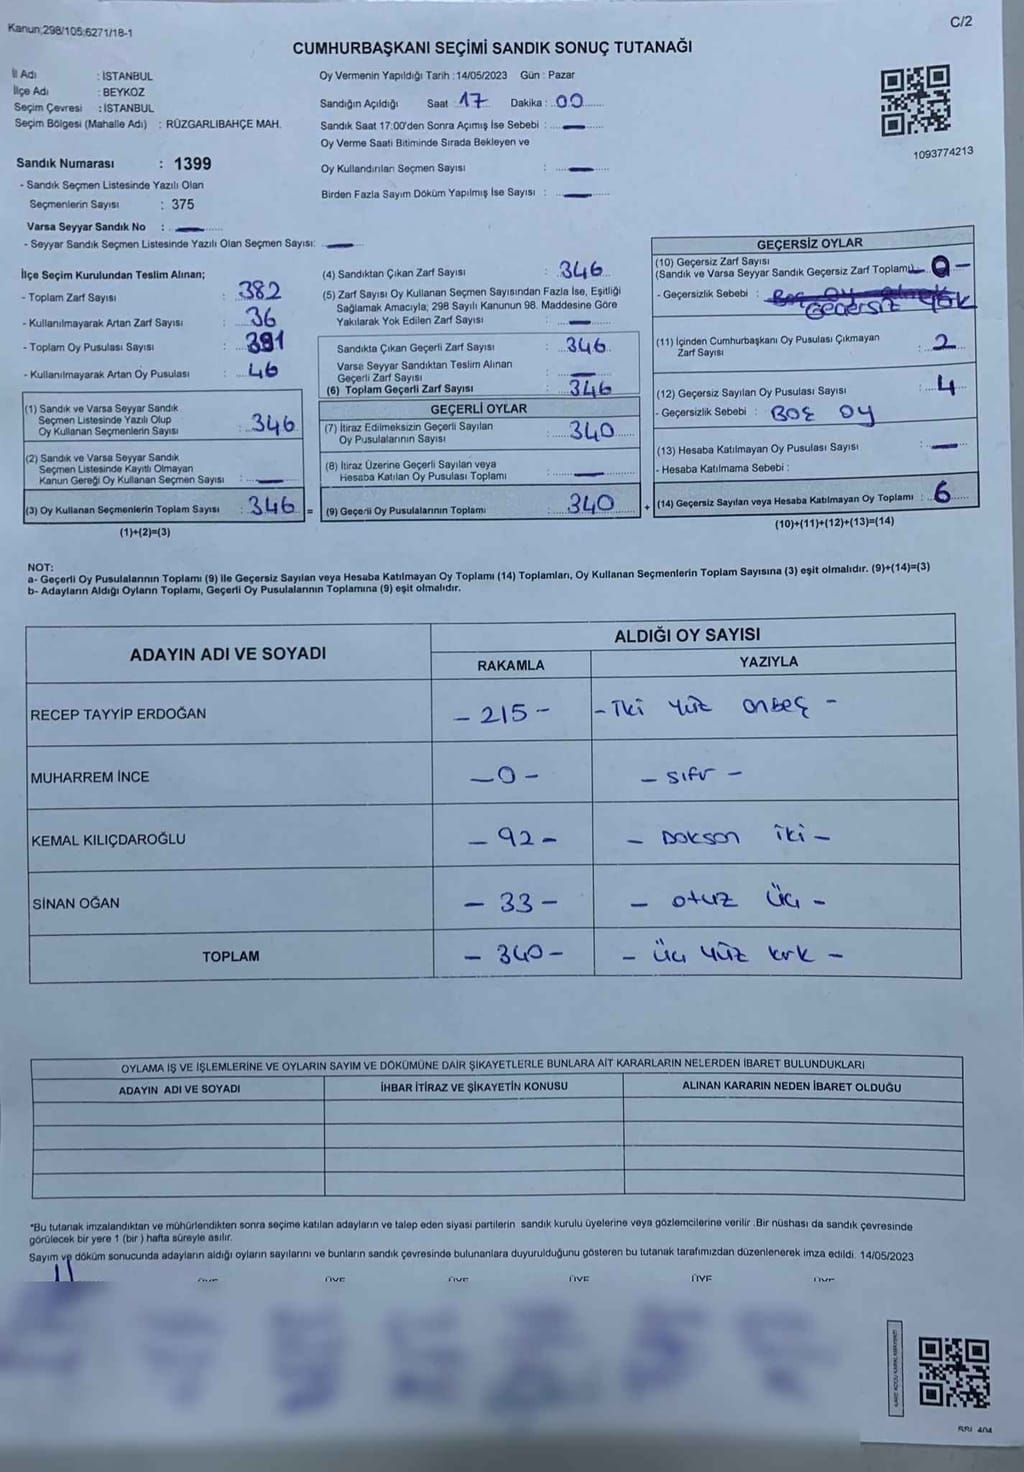 Kanun:298/105:6271/18-1
C/2
CUMHURBAŞKANI SEÇİMİ SANDIK SONUÇ TUTANAĞI
İl Adı : İSTANBUL
İlçe Adı : BEYKOZ
Seçim Çevresi : İSTANBUL
Seçim Bölgesi (Mahalle Adı) : RÜZGARLIBAHÇE MAH.
Sandık Numarası : 1399
- Sandık Seçmen Listesinde Yazılı Olan
Seçmenlerin Sayısı : 375
Varsa Seyyar Sandık No : —
- Seyyar Sandık Seçmen Listesinde Yazılı Olan Seçmen Sayısı: —
Oy Vermenin Yapıldığı Tarih : 14/05/2023 Gün : Pazar
Sandığın Açıldığı Saat : 17 Dakika : 00
Sandık Saat 17:00'den Sonra Açımış İse Sebebi : —
Oy Verme Saati Bitiminde Sırada Bekleyen ve
Oy Kullandırılan Seçmen Sayısı : —
Birden Fazla Sayım Döküm Yapılmış İse Sayısı : —
1093774213
İlçe Seçim Kurulundan Teslim Alınan;
- Toplam Zarf Sayısı : 382
- Kullanılmayarak Artan Zarf Sayısı : 36
- Toplam Oy Pusulası Sayısı : 391
- Kullanılmayarak Artan Oy Pusulası : 46
(1) Sandık ve Varsa Seyyar Sandık
Seçmen Listesinde Yazılı Olup
Oy Kullanan Seçmenlerin Sayısı : 346
(2) Sandık ve Varsa Seyyar Sandık
Seçmen Listesinde Kayıtlı Olmayan
Kanun Gereği Oy Kullanan Seçmen Sayısı : —
(3) Oy Kullanan Seçmenlerin Toplam Sayısı : 346 =
(1)+(2)=(3)
(4) Sandıktan Çıkan Zarf Sayısı : 346
(5) Zarf Sayısı Oy Kullanan Seçmen Sayısından Fazla İse, Eşitliği
Sağlamak Amacıyla; 298 Sayılı Kanunun 98. Maddesine Göre
Yakılarak Yok Edilen Zarf Sayısı : —
Sandıkta Çıkan Geçerli Zarf Sayısı : 346
Varse Seyyar Sandıktan Teslim Alınan
Geçerli Zarf Sayısı : —
(6) Toplam Geçerli Zarf Sayısı : 346
GEÇERLİ OYLAR
(7) İtiraz Edilmeksizin Geçerli Sayılan
Oy Pusulalarının Sayısı : 340
(8) İtiraz Üzerine Geçerli Sayılan veya
Hesaba Katılan Oy Pusulası Toplamı : —
(9) Geçerli Oy Pusulalarının Toplamı : 340 +
GEÇERSİZ OYLAR
(10) Geçersiz Zarf Sayısı
(Sandık ve Varsa Seyyar Sandık Geçersiz Zarf Toplamı) 0 —
- Geçersizlik Sebebi : Geçersiz Yok
(11) İçinden Cumhurbaşkanı Oy Pusulası Çıkmayan
Zarf Sayısı : 2
(12) Geçersiz Sayılan Oy Pusulası Sayısı : 4
- Geçersizlik Sebebi : BOŞ OY
(13) Hesaba Katılmayan Oy Pusulası Sayısı : —
- Hesaba Katılmama Sebebi :
(14) Geçersiz Sayılan veya Hesaba Katılmayan Oy Toplamı : 6
(10)+(11)+(12)+(13)=(14)
NOT:
a- Geçerli Oy Pusulalarının Toplamı (9) ile Geçersiz Sayılan veya Hesaba Katılmayan Oy Toplamı (14) Toplamları, Oy Kullanan Seçmenlerin Toplam Sayısına (3) eşit olmalıdır. (9)+(14)=(3)
b- Adayların Aldığı Oyların Toplamı, Geçerli Oy Pusulalarının Toplamına (9) eşit olmalıdır.
ADAYIN ADI VE SOYADI ALDIĞI OY SAYISI
RAKAMLA YAZIYLA
RECEP TAYYİP ERDOĞAN - 215 - - İki Yüz onbeş -
MUHARREM İNCE - 0 - - sıfır -
KEMAL KILIÇDAROĞLU - 92 - - Doksan iki -
SİNAN OĞAN - 33 - - otuz Üç -
TOPLAM - 340 - - Üç yüz kırk -
OYLAMA İŞ VE İŞLEMLERİNE VE OYLARIN SAYIM VE DÖKÜMÜNE DAİR ŞİKAYETLERLE BUNLARA AİT KARARLARIN NELERDEN İBARET BULUNDUKLARI
ADAYIN ADI VE SOYADI İHBAR İTİRAZ VE ŞİKAYETİN KONUSU ALINAN KARARIN NEDEN İBARET OLDUĞU
*Bu tutanak imzalandıktan ve mühürlendikten sonra seçime katılan adayların ve talep eden siyasi partilerin sandık kurulu üyelerine veya gözlemcilerine verilir .Bir nüshası da sandık çevresinde
görülecek bir yere 1 (bir ) hafta süreyle asılır.
Sayım ve döküm sonucunda adayların aldığı oyların sayılarını ve bunların sandık çevresinde bulunanlara duyurulduğunu gösteren bu tutanak tarafımızdan düzenlenerek imza edildi. 14/05/2023
ÜYE ÜYE ÜYE ÜYE ÜYE ÜYE